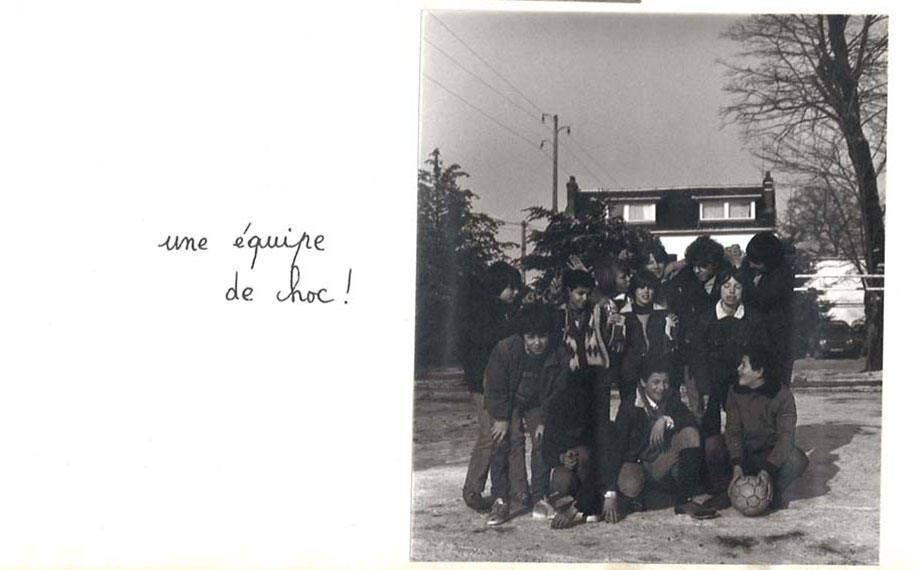 une équipe
de choc !